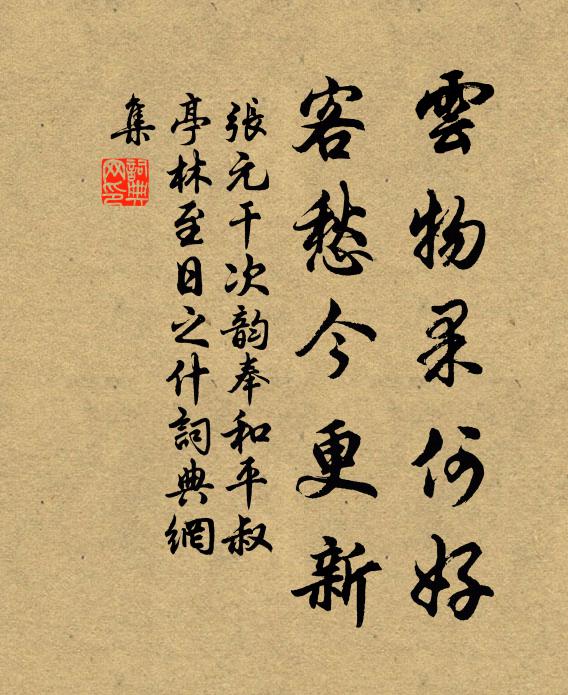 雲物果何好
客愁今更新
張元干次韵奉和平叔
亭林至日之什詞典網
集
詞典网印